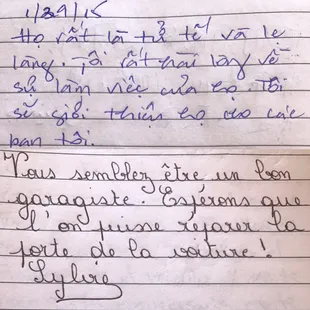 1/29/15
Họ rất là tử tế và lẹ
làng. Tôi rất hài lòng về
sự làm việc của họ. Tôi
sẽ giới thiệu họ cho các
bạn tôi.
Vous semblez être un bon
garagiste. Espérons que
l'on puisse réparer la
porte de la voiture!
Sylvie